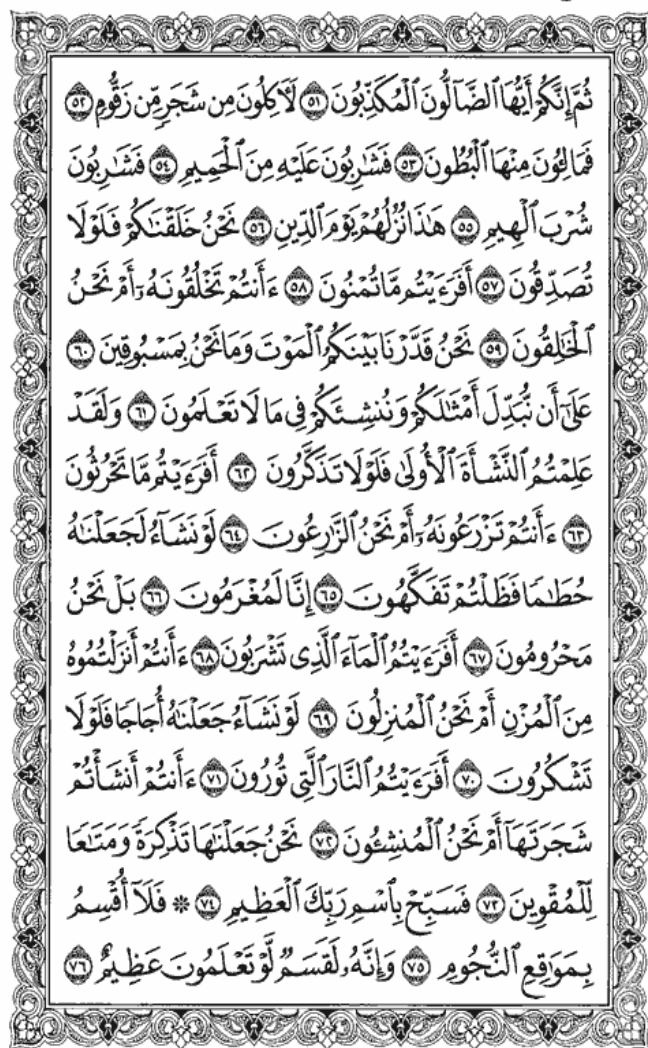 ثُمَّ إِنَّكُمْ أَيُّهَا ٱلضَّآلُّونَ ٱلْمُكَذِّبُونَ ٥١ لَأٓكِلُونَ مِن شَجَرٍ مِّن زَقُّومٍ ٥٢
فَمَالِـُٔونَ مِنْهَا ٱلْبُطُونَ ٥٣ فَشَٰرِبُونَ عَلَيْهِ مِنَ ٱلْحَمِيمِ ٥٤ فَشَٰرِبُونَ
شُرْبَ ٱلْهِيمِ ٥٥ هَٰذَا نُزُلُهُمْ يَوْمَ ٱلدِّينِ ٥٦ نَحْنُ خَلَقْنَٰكُمْ فَلَوْلَا
تُصَدِّقُونَ ٥٧ أَفَرَءَيْتُم مَّا تُمْنُونَ ٥٨ ءَأَنتُمْ تَخْلُقُونَهُۥٓ أَمْ نَحْنُ
ٱلْخَٰلِقُونَ ٥٩ نَحْنُ قَدَّرْنَا بَيْنَكُمُ ٱلْمَوْتَ وَمَا نَحْنُ بِمَسْبُوقِينَ ٦٠
عَلَىٰٓ أَن نُّبَدِّلَ أَمْثَٰلَكُمْ وَنُنشِئَكُمْ فِى مَا لَا تَعْلَمُونَ ٦١ وَلَقَدْ
عَلِمْتُمُ ٱلنَّشْأَةَ ٱلْأُولَىٰ فَلَوْلَا تَذَكَّرُونَ ٦٢ أَفَرَءَيْتُم مَّا تَحْرُثُونَ
٦٣ ءَأَنتُمْ تَزْرَعُونَهُۥٓ أَمْ نَحْنُ ٱلزَّٰرِعُونَ ٦٤ لَوْ نَشَآءُ لَجَعَلْنَٰهُ
حُطَٰمًا فَظَلْتُمْ تَفَكَّهُونَ ٦٥ إِنَّا لَمُغْرَمُونَ ٦٦ بَلْ نَحْنُ
مَحْرُومُونَ ٦٧ أَفَرَءَيْتُمُ ٱلْمَآءَ ٱلَّذِى تَشْرَبُونَ ٦٨ ءَأَنتُمْ أَنزَلْتُمُوهُ
مِنَ ٱلْمُزْنِ أَمْ نَحْنُ ٱلْمُنزِلُونَ ٦٩ لَوْ نَشَآءُ جَعَلْنَٰهُ أُجَاجًا فَلَوْلَا
تَشْكُرُونَ ٧٠ أَفَرَءَيْتُمُ ٱلنَّارَ ٱلَّتِى تُورُونَ ٧١ ءَأَنتُمْ أَنشَأْتُمْ
شَجَرَتَهَآ أَمْ نَحْنُ ٱلْمُنشِـُٔونَ ٧٢ نَحْنُ جَعَلْنَٰهَا تَذْكِرَةً وَمَتَٰعًا
لِّلْمُقْوِينَ ٧٣ فَسَبِّحْ بِٱسْمِ رَبِّكَ ٱلْعَظِيمِ ٧٤ ۞ فَلَآ أُقْسِمُ
بِمَوَٰقِعِ ٱلنُّجُومِ ٧٥ وَإِنَّهُۥ لَقَسَمٌ لَّوْ تَعْلَمُونَ عَظِيمٌ ٧٦